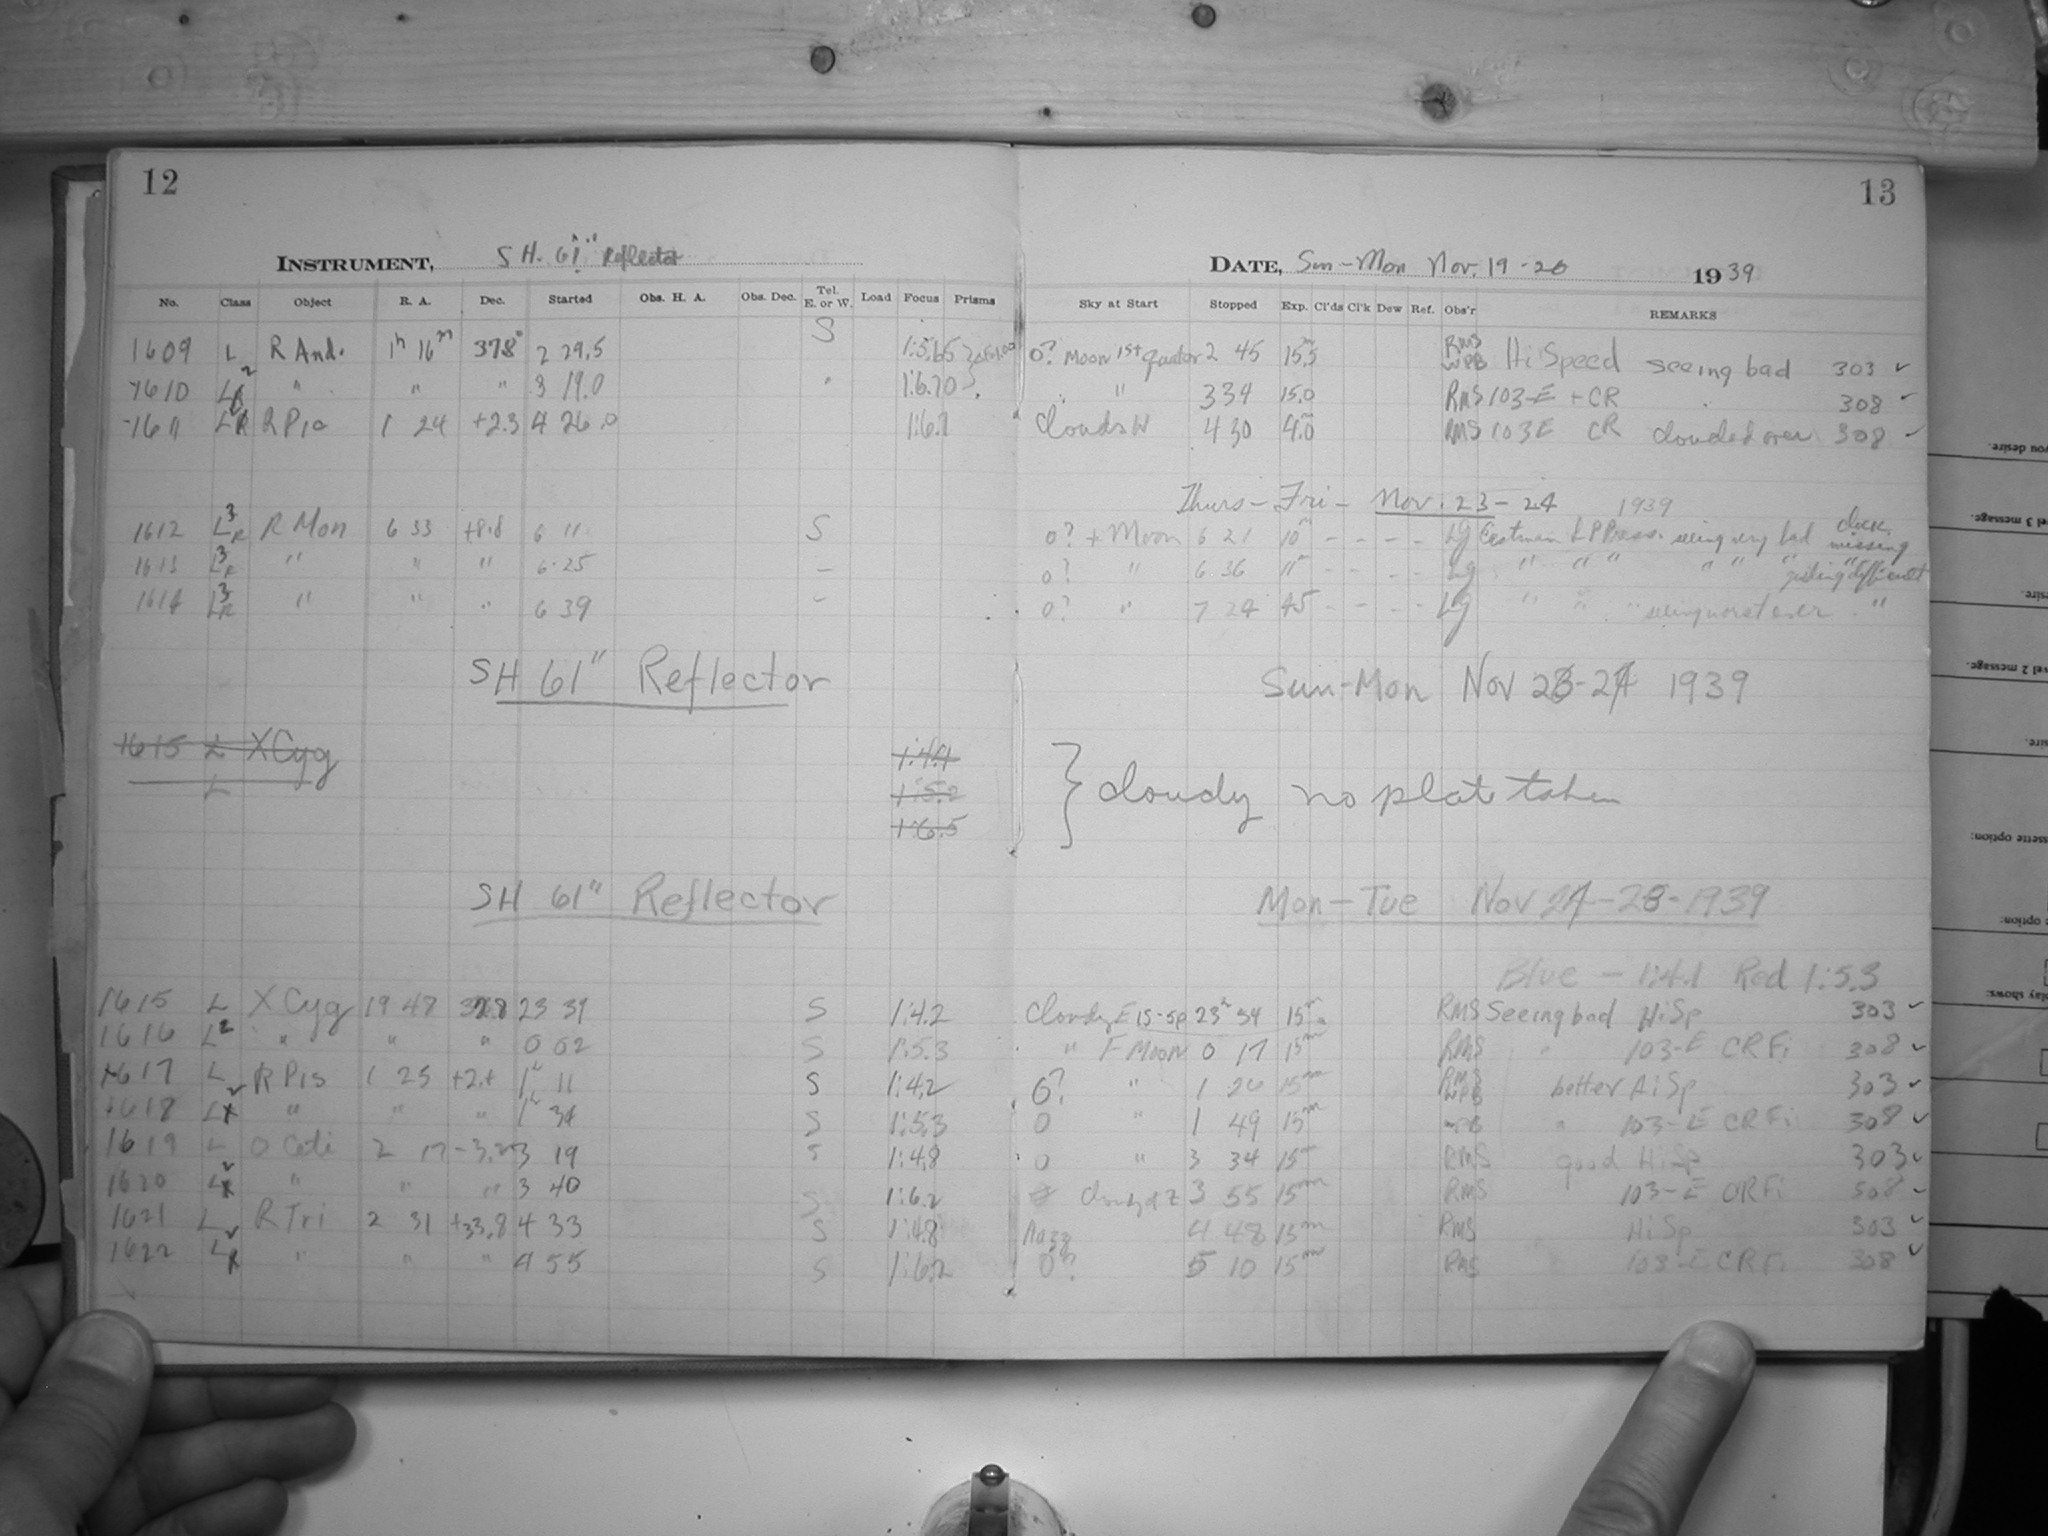 12
13
INSTRUMENT, SH. 61" Reflector
DATE, Sun-Mon Nov. 19-20 1939
No. Class Object R. A. Dec. Started Obs. H. A. Obs. Dec. Tel. E. or W. Load Focus Prisms Sky at Start Stopped Exp. Cl'ds Cl'k Dew Ref. Obs'r REMARKS
1609 L R And. 1h 16m 378° 2 29.5 S 1:5.65 0? Moon 1st quarter 2 45 15.5 RMS WPB Hi Speed seeing bad 303 ✓
1610 " " " 3 19.0 " 1:6.70 " " 3 34 15.0 RMS 103-E + CR 308
1611 LR 1 24 +2.3 4 26.0 1:6.7 clouds W 4 30 4.0 RMS 103E CR clouded over 308
Thurs-Fri- Nov. 23-24 1939
1612 L3R R Mon 6 33 6 11 S 0? + Moon 6 21 10m - - - - Lg Eastman seeing very bad clock missing
1613 L3R " " " 6 25 - 0? " 6 36 11m - - - - Lg " " " " " " guiding difficult
1614 L3R " " " 6 39 - 0? " 7 24 45 - - - - Lg " " " seeing worst ever "
SH 61" Reflector
Sun-Mon Nov 1939
1615 L X Cyg 1:4.4
L 1:5.2
1:6.5
} cloudy no plate taken
SH 61" Reflector
Mon-Tue Nov 1939
Blue - 1:4.1 Red 1:5.3
1615 L X Cyg 19 47 23 39 S 1:4.2 cloudy E 23h 54 15m RMS Seeing bad HiSp 303 ✓
1616 L2 " " " 0 02 S 1:5.3 " F Moon 0 17 15m RMS " 103-E CR Fi 308 ✓
1617 L R Pis 1 25 1h 11 S 1:4.2 0? " 1 26 15m RMS WPB better HiSp 303 ✓
1618 " " " 1h 34 S 1:5.3 0 " 1 49 15m WPB " 103-E CR Fi 308 ✓
1619 L O Ceti 2 17 3 19 S 1:4.8 0 " 3 34 15m RMS good HiSp 303 ✓
1620 " " " 3 40 S 1:6.2 3 55 15m RMS 103-E CR Fi 308 ✓
1621 L R Tri 2 31 +33.8 4 33 S 1:4.8 Hazy 4 48 15m RMS HiSp 303 ✓
1622 " " " 4 55 S 1:6.2 0? 5 10 15m RMS 103-E CR Fi 308 ✓
you desire.
vel 3 message.
sire.
vel 2 message.
sire.
ssette option:
option:
lay shows: